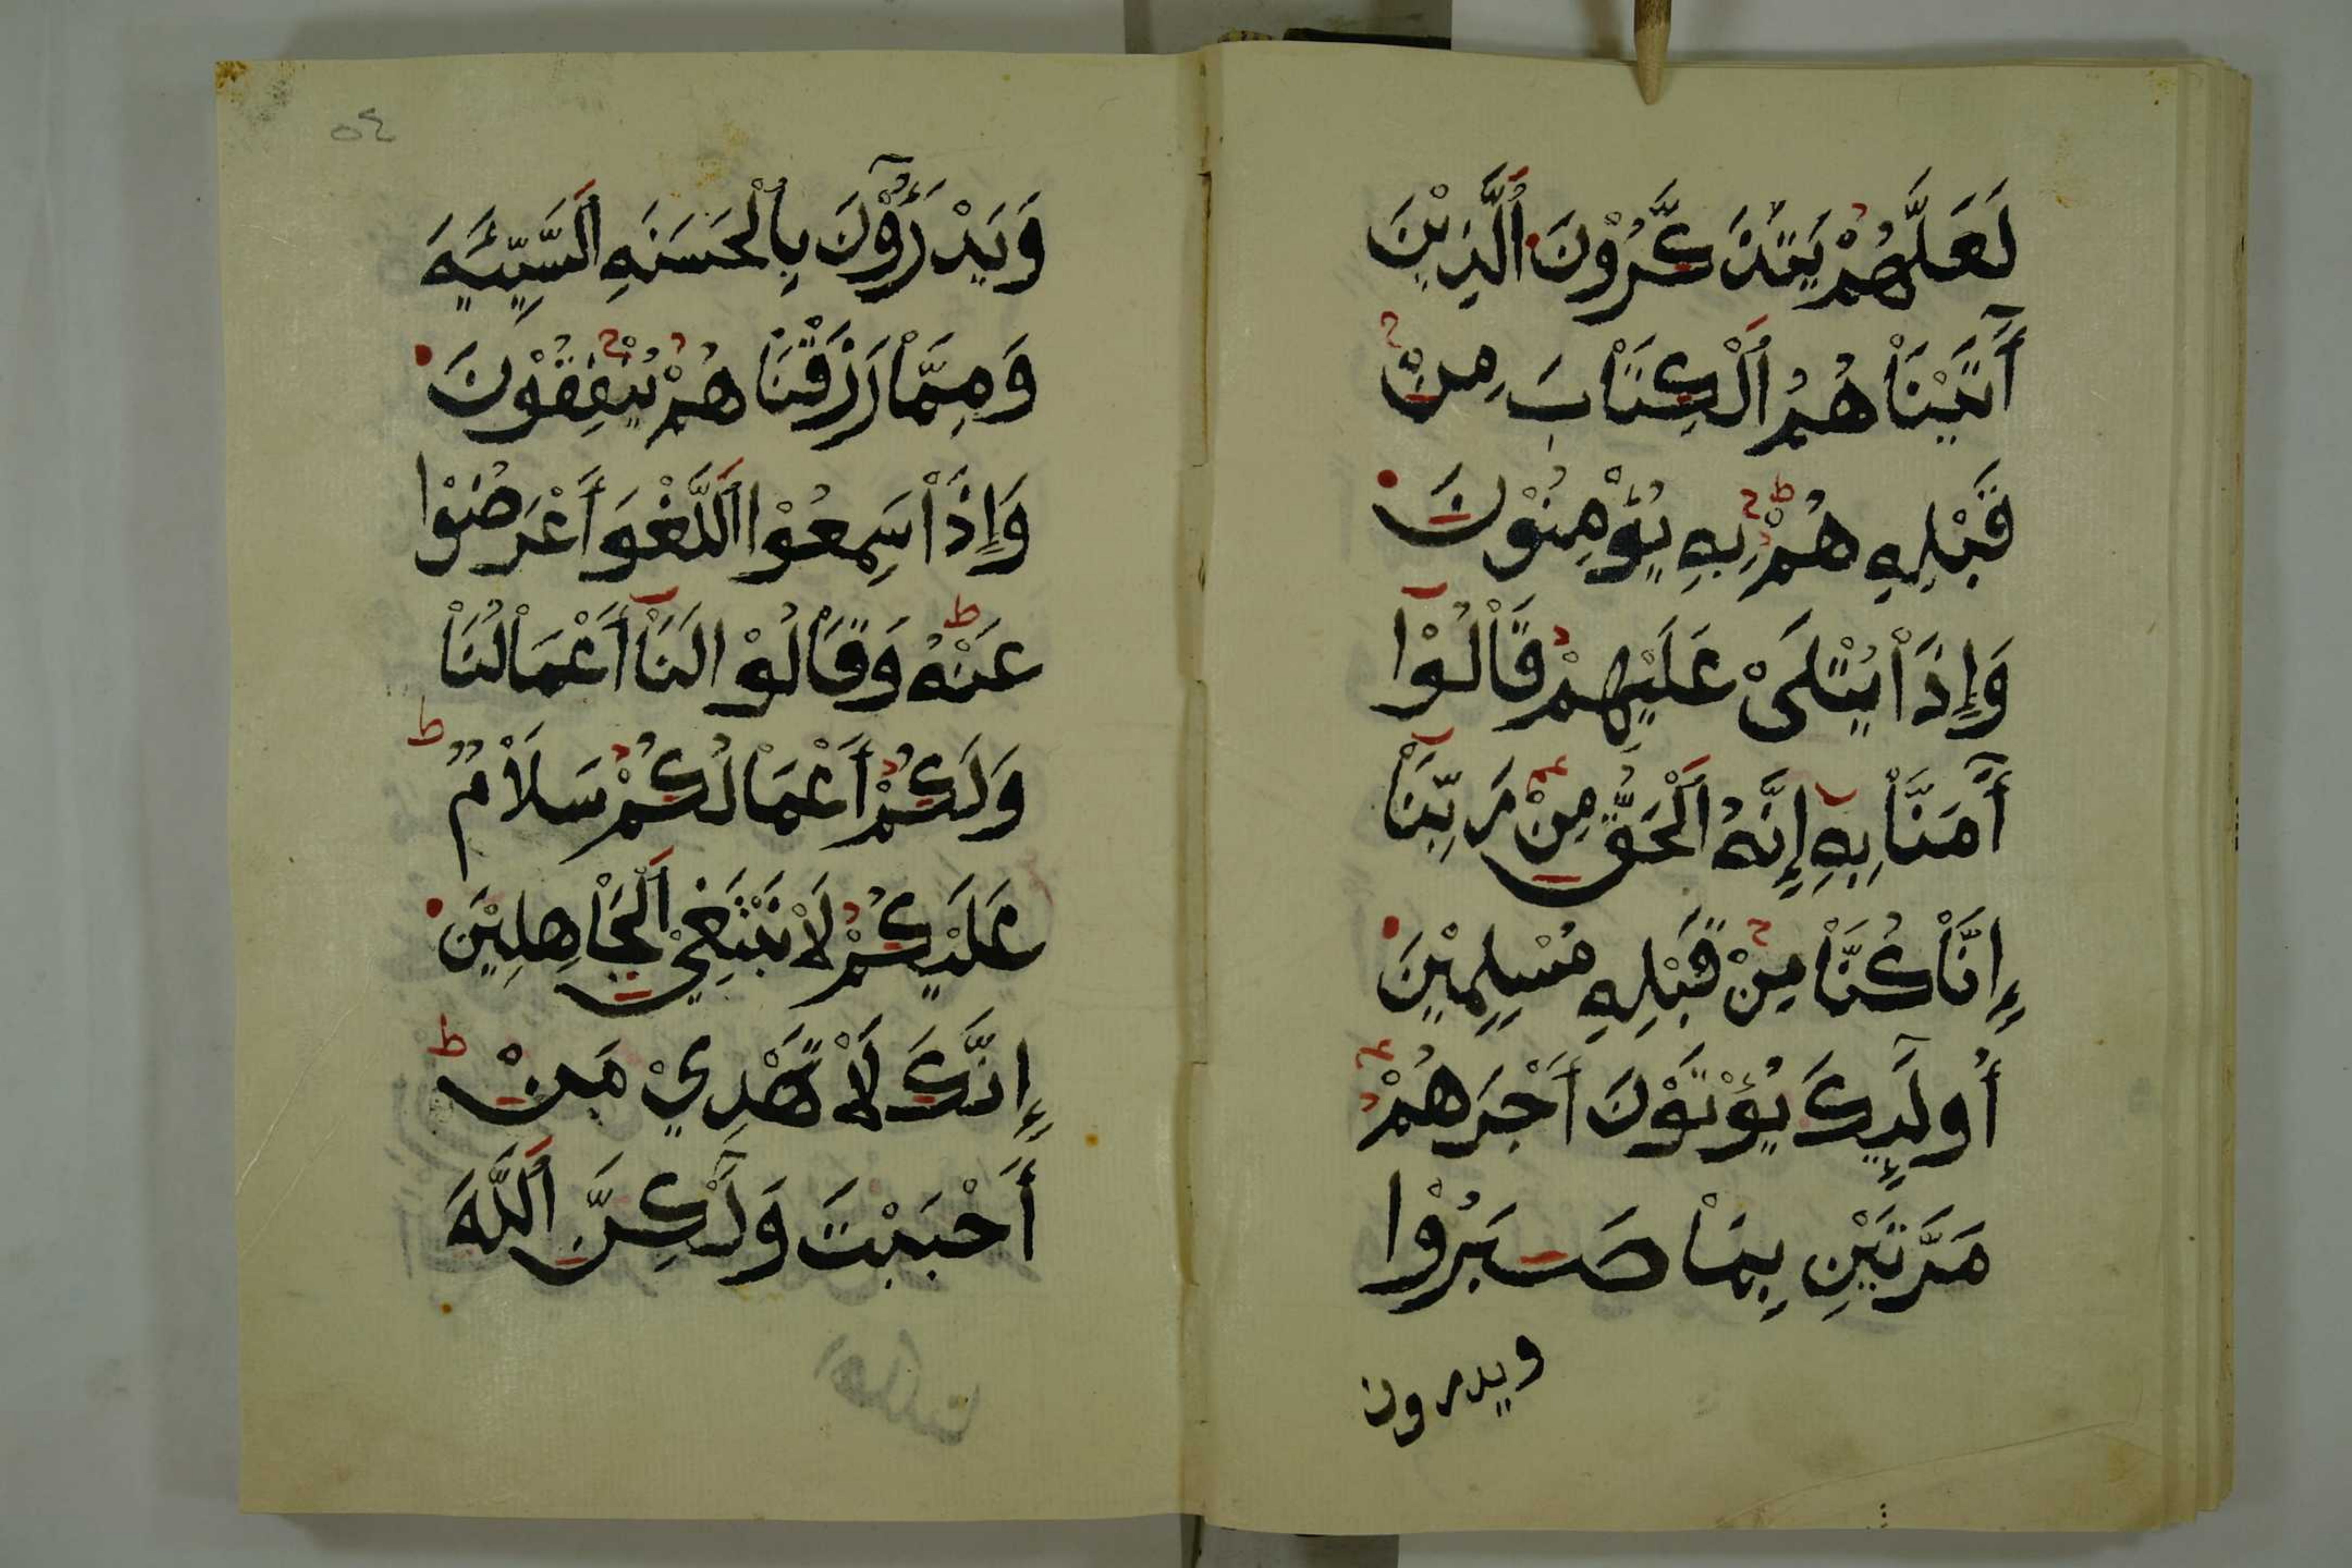 لَعَلَّهُمْ يَتَذَكَّرُوْنَ اَلَّذِيْنَ
أٓتَيْنَاْهُمُ اَلْكِتَاْبَ مِنْ
قَبْلِهِ هُمْ بِهِ يُؤْمِنُوْنَ
وَإِذَاْ يُتْلَىْ عَلَيْهِمْ قَاْلُوْا
أٓمَنَّاْ بِهِ إِنَّهُ اَلْحَقُّ مِنْ رَبِّنَاْ
إِنَّاْ كُنَّاْ مِنْ قَبْلِهِ مُسْلِمِيْنَ
أُولَٓئِكَ يُؤْتَوْنَ أَجْرَهُمْ
مَرَّتَيْنِ بِمَاْ صَبَرُوْا
ويدرون
وَيَدْرَؤُوْنَ بِالْحَسَنَةِ اَلسَّيِّئَةَ
وَمِمَّاْ رَزَقْنَاْهُمْ يُنْفِقُوْنَ
وَإِذَاْ سَمِعُوْا اَللَّغْوَ أَعْرَضُوْا
عَنْهُ وَقَاْلُوْا لَنَاْ أَعْمَاْلُنَاْ
وَلَكُمْ أَعْمَاْلُكُمْ سَلَاْمٌ
عَلَيْكُمْ لَاْ نَبْتَغِيْ اَلْجَاْهِلِيْنَ
إِنَّكَ لَاْ تَهْدِيْ مَنْ
أَحْبَبْتَ وَلَٓكِنَّ اَللَّهَ
٥٤